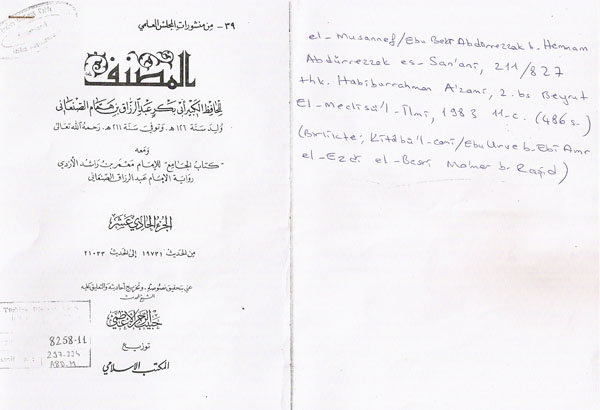 ٣٩ - من منشورات المجلس العلمي
المصنف
للحافظ الكبير أبي بكر عبد الرزاق بن همام الصنعاني
ولد سنة ١٢٦ هـ وتوفي سنة ٢١١ هـ رحمه الله تعالى
ومعه
"كتاب الجامع" للإمام معمر بن راشد الأزدي
رواية الإمام عبد الرزاق الصنعاني
الجزء الحادي عشر
من الحديث ١٩٧٣١ إلى الحديث ٢١٠٣٣
عني بتحقيق نصوصه وتخريج أحاديثه والتعليق عليه
الشيخ المحدث
حبيب الرحمن الأعظمي
توزيع
المكتب الإسلامي
8258-11
297.334
ABD.M
el-Musannef/Ebu Bekr Abdürrezzak b. Hemmam
Abdürrezzak es-San'ani, 211/827
thk. Habiburrahman A'zami, 2. bs Beyrut
El-Meclisü'l-İlmi, 1983 11-c. (486 s.)
(Birlikte; Kitâbü'l-cami/Ebu Urve b. Ebi Amr
el-Ezdi el-Basri Ma'mer b. Raşid)